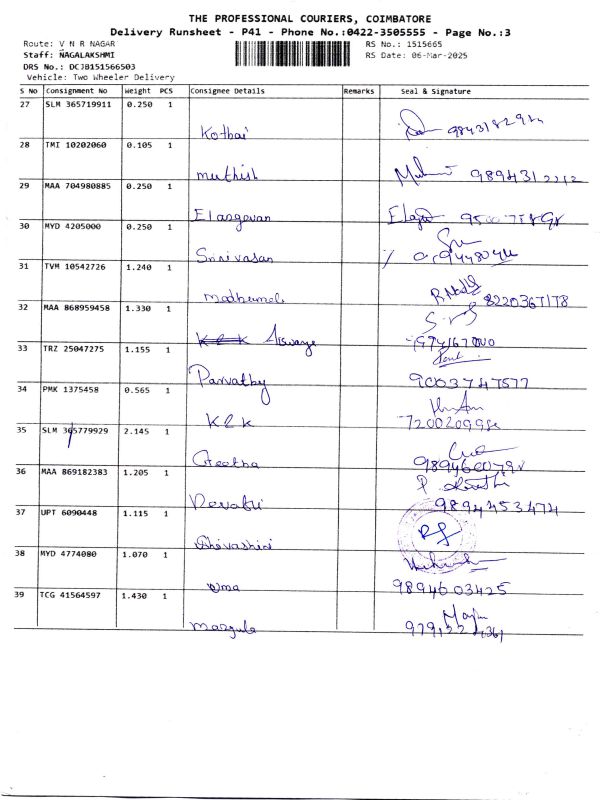 THE PROFESSIONAL COURIERS, COIMBATORE
Delivery Runsheet - P41 - Phone No.:0422-3505555 - Page No.:3
Route: V N R NAGAR RS No.: 1515665
Staff: NAGALAKSHMI RS Date: 06-Mar-2025
DRS No.: DCJB151566503
Vehicle: Two Wheeler Delivery
S No Consignment No Weight PCS Consignee Details Remarks Seal & Signature
27 SLM 365719911 0.250 1
Kothai
28 TMI 10202060 0.105 1
Muthish
29 MAA 704980885 0.250 1
Elangovan
30 MYD 4205000 0.250 1
Srinivasan
31 TVM 10542726 1.240 1
8220367178
32 MAA 868959458 1.330 1
33 TRZ 25047275 1.155 1
Parvathy 9003747577
34 PMK 1375458 0.565 1
KRK
35 SLM 365779929 2.145 1
Geetha
36 MAA 869182383 1.205 1
9894453474
37 UPT 6090448 1.115 1
RS
38 MYD 4774080 1.070 1
Uma 9894603425
39 TCG 41564597 1.430 1